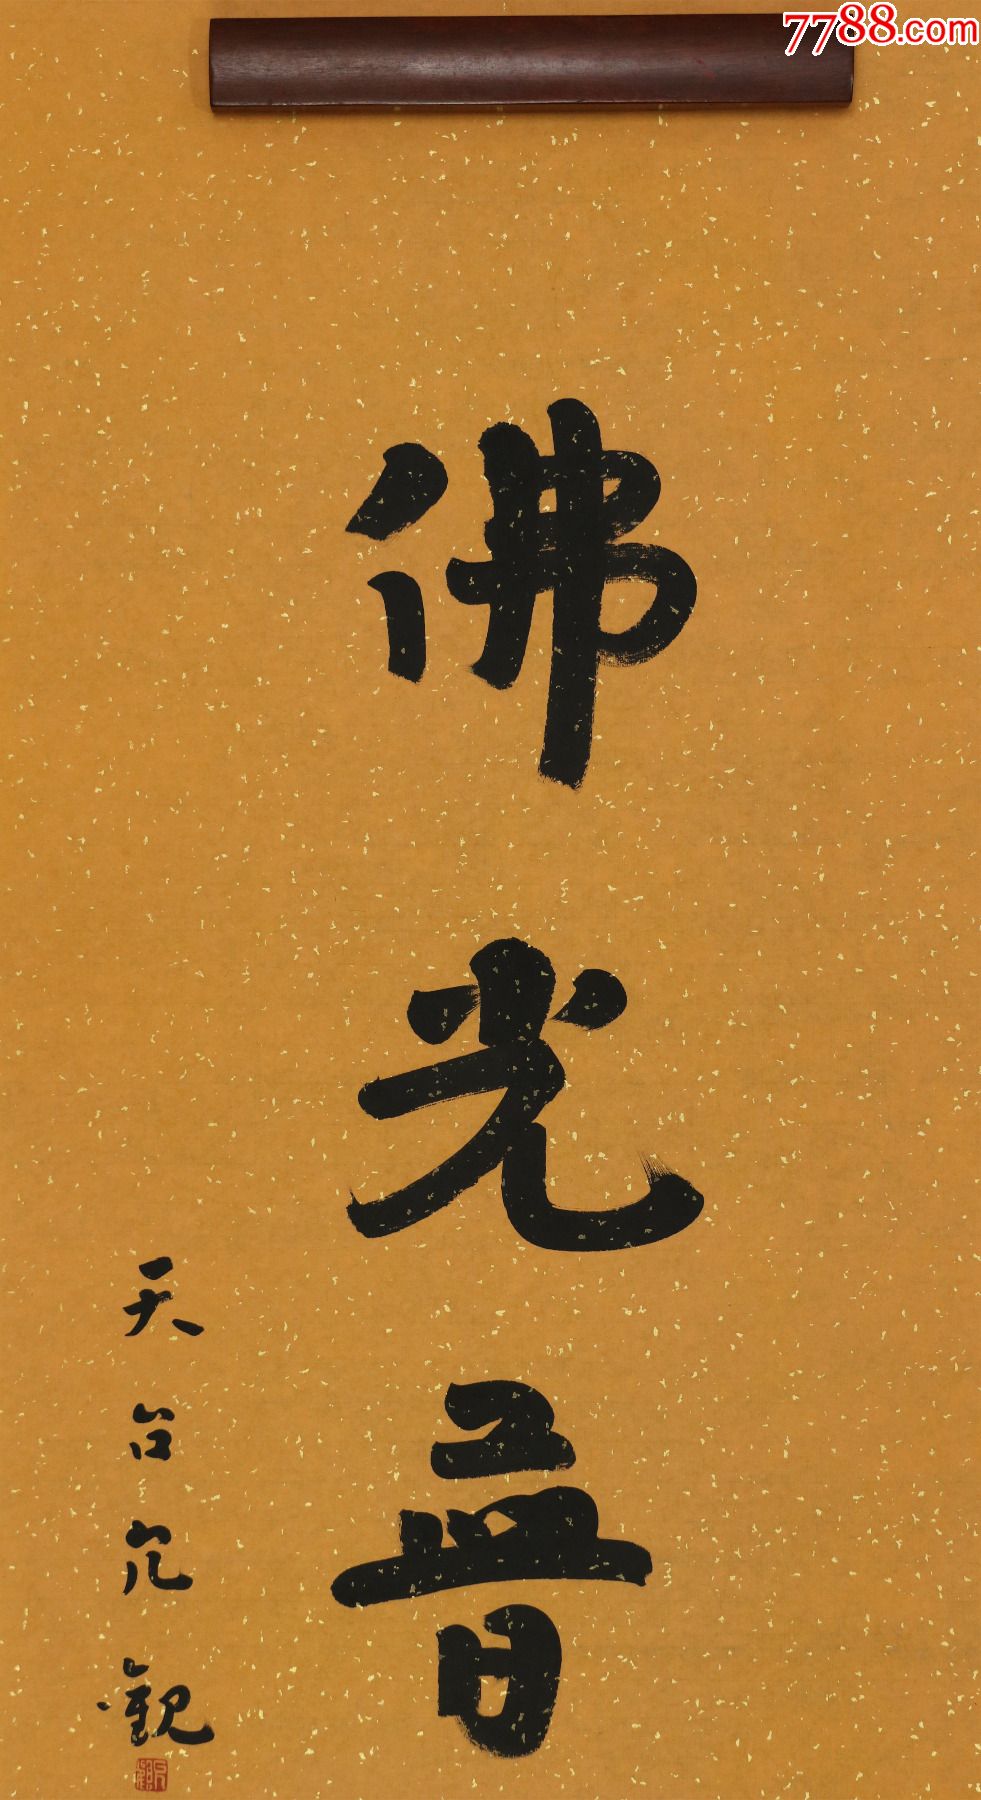 7788.com
佛光普
天台允觀